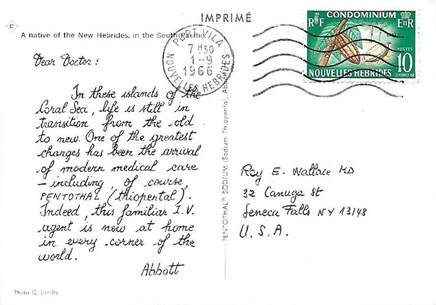 IMPRIMÉ
A native of the New Hebrides, in the South
Dear Doctor:
In these islands of the
Coral Sea, life is still in
transition from the old
to new. One of the greatest
changes has been the arrival
of modern medical care
—including, of course
PENTOTHAL (thiopental).
Indeed, this familiar I.V.
agent is now at home
in every corner of the
world.
Abbott
PORT-VILA
7H30
1-9
1966
NOUVELLES HEBRIDES
CONDOMINIUM
RF
EIIR
POSTES
10
NOUVELLES HEBRIDES
PENTOTHAL® SODIUM (Sodium Thiopental, Abbott)
Roy E. Wallace MD
32 Canuga St
Seneca Falls NY 13148
U.S.A.
Photo C.